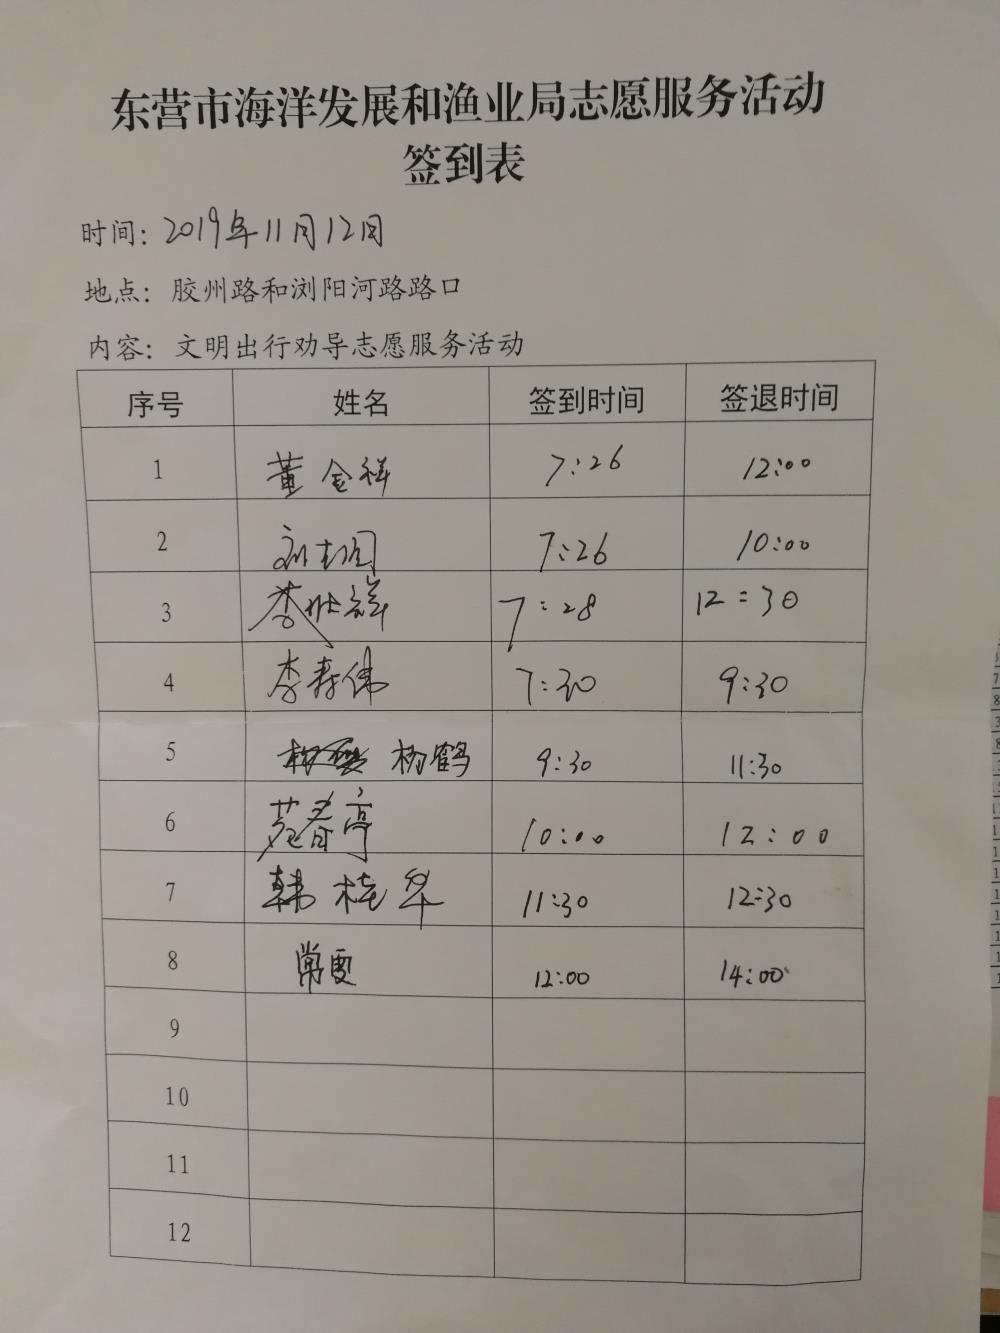 东营市海洋发展和渔业局志愿服务活动
签到表
时间：2019年11月12日
地点：胶州路和浏阳河路路口
内容：文明出行劝导志愿服务活动
序号 姓名 签到时间 签退时间
1 董金祥 7:26 12:00
2 7:26 10:00
3 李 祥 7:28 12:30
4 李寿伟 7:30 9:30
5 杨鹤 9:30 11:30
6 范春亭 10:00 12:00
7 韩桂华 11:30 12:30
8 常更 12:00 14:00
9
10
11
12